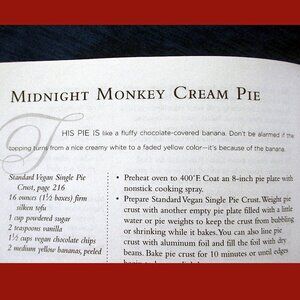 MIDNIGHT MONKEY CREAM PIE
THIS PIE IS like a fluffy chocolate-covered banana. Don't be alarmed if the
topping turns from a nice creamy white to a faded yellow color—it's because of the banana.
Standard Vegan Single Pie
Crust, page 216
16 ounces (1½ boxes) firm
silken tofu
1 cup powdered sugar
2 teaspoons vanilla
1½ cups vegan chocolate chips
2 medium yellow bananas, peeled
• Preheat oven to 400°F. Coat an 8-inch pie plate with
nonstick cooking spray.
• Prepare Standard Vegan Single Pie Crust. Weight pie
crust with another empty pie plate filled with a little
water or pie weights to keep the crust from bubbling
or shrinking while it bakes. You can also line pie
crust with aluminum foil and fill the foil with dry
beans. Bake pie crust for 10 minutes or until edges